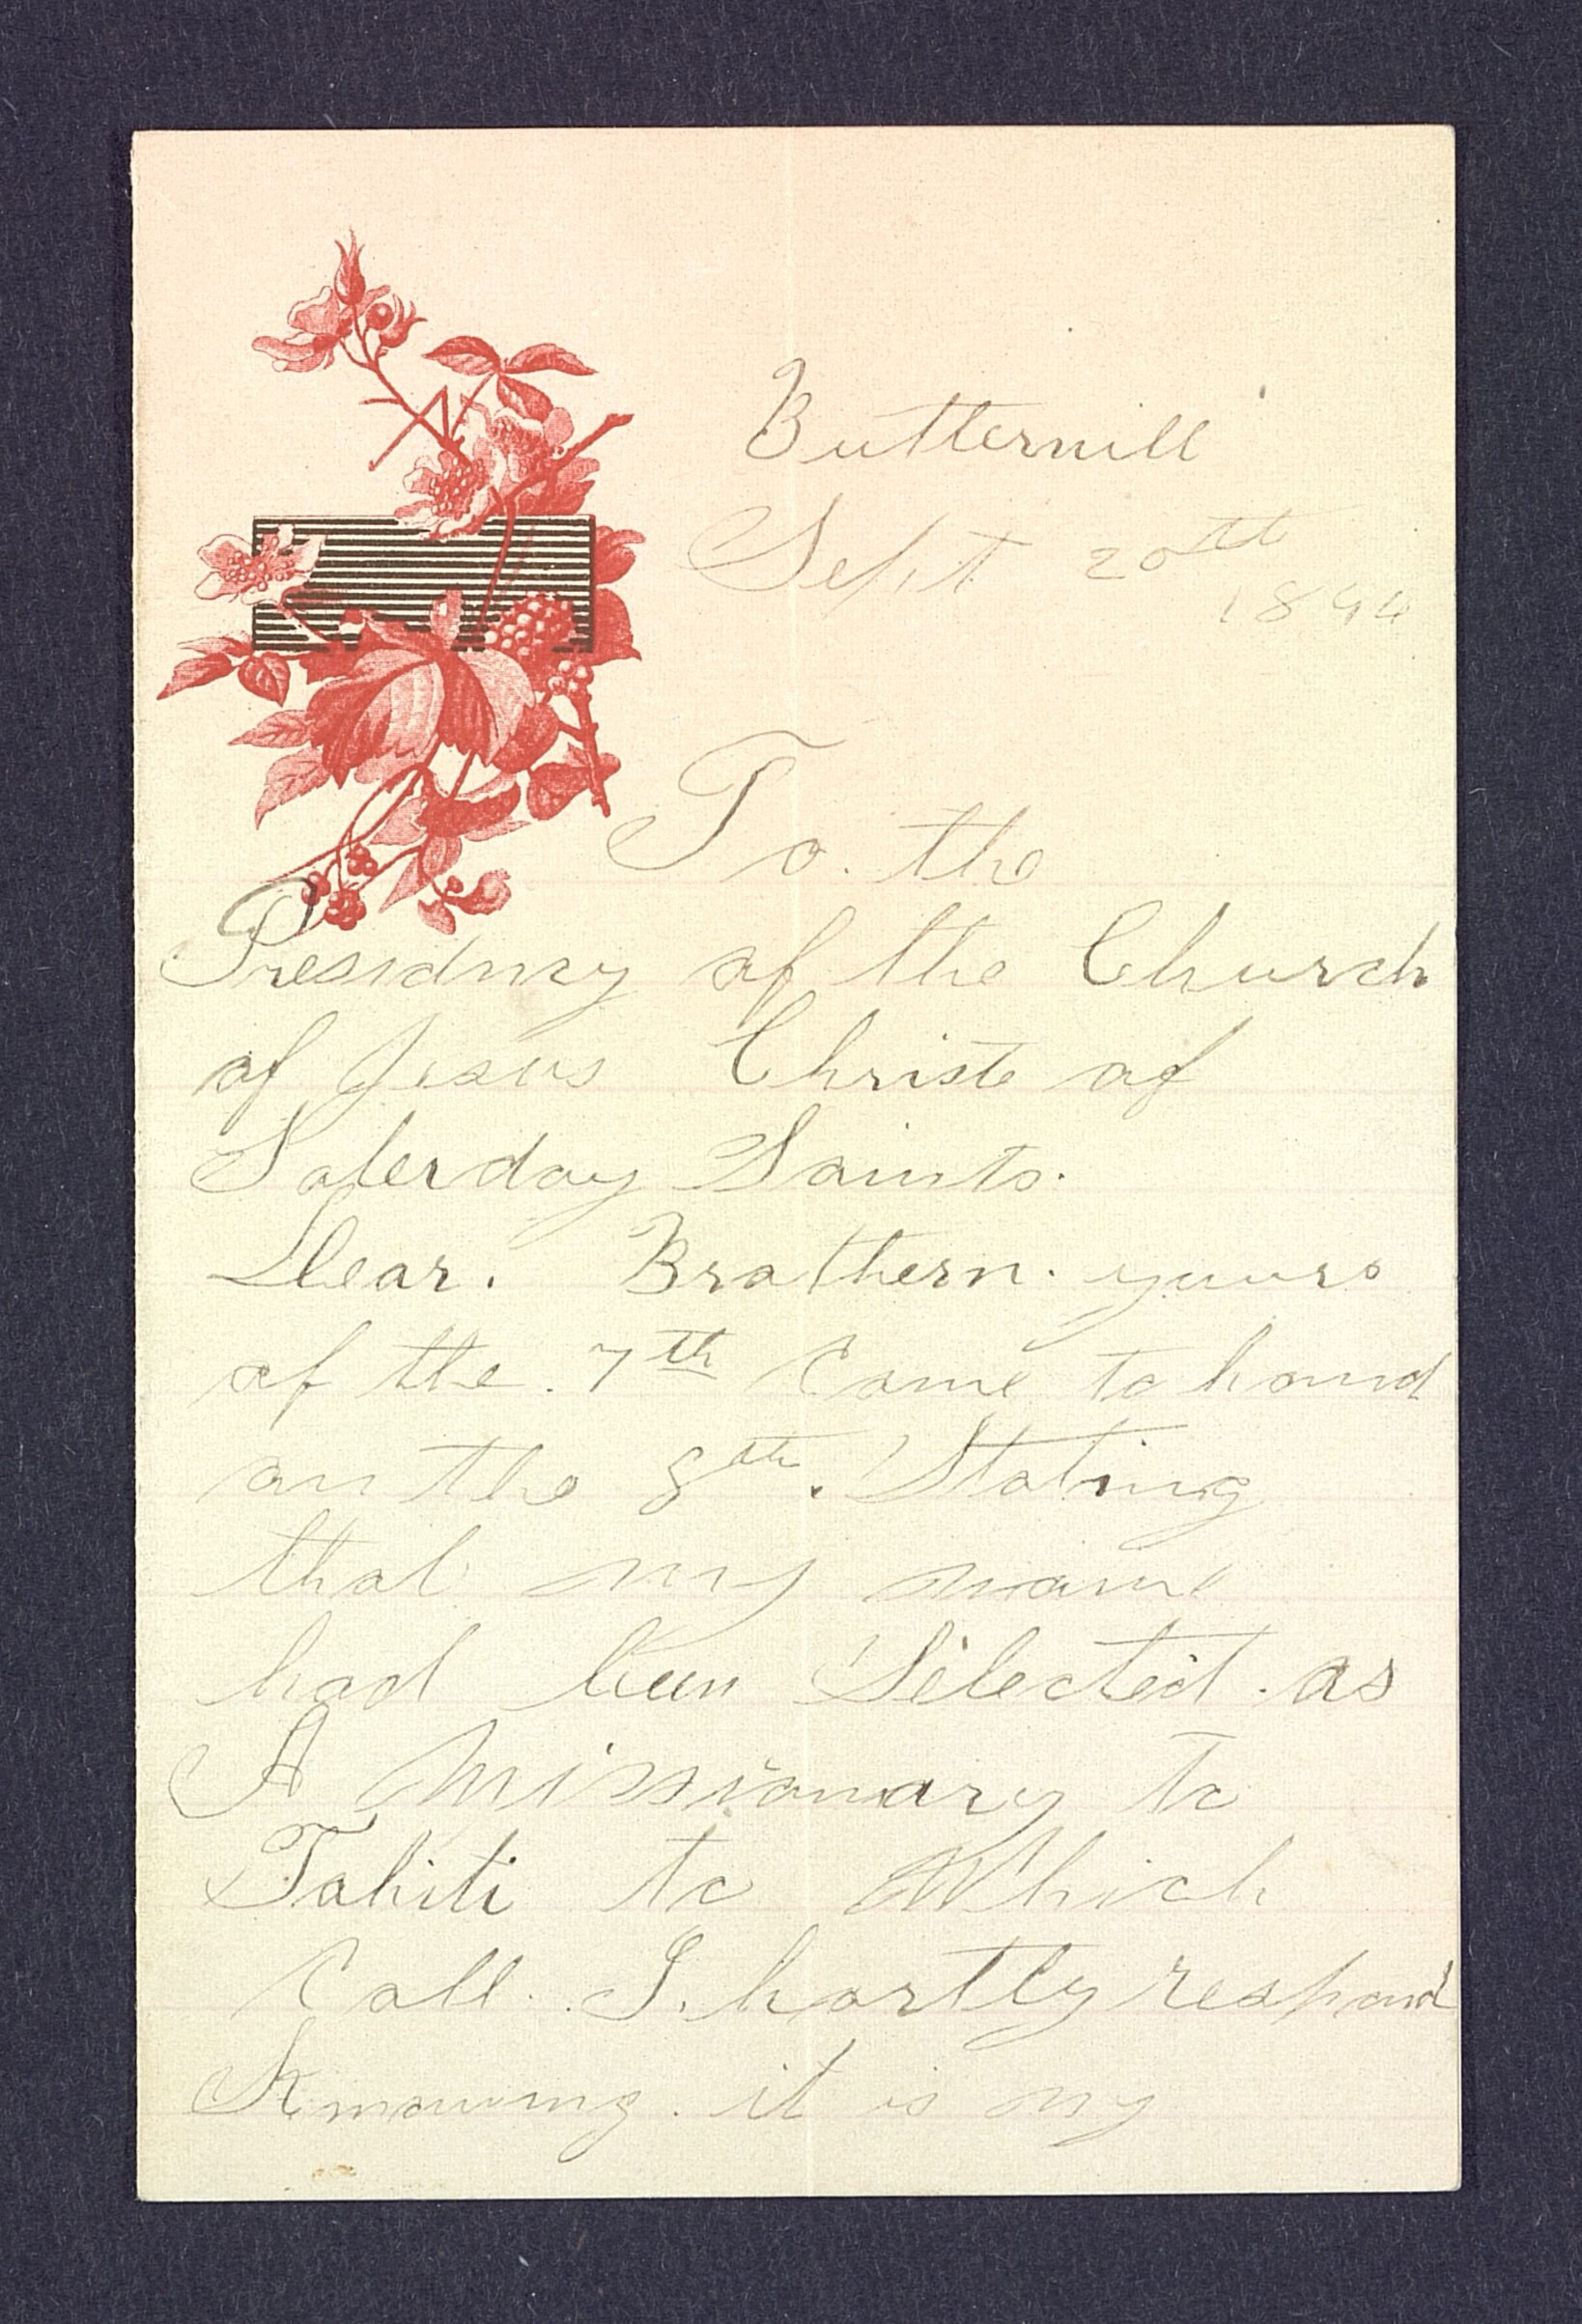 Butternill
Sept 20th
1894
To. the
Presidncy of the Church
of Jesus Christe of
Saterday Saints.
Dear. Brothern. yours
of the. 7th Came to hand
on the 8th. Stating
that my name
had been Selected. as
A Missionary to
Tahiti to Which
Call. I. hartly respond
Knowing. it is my